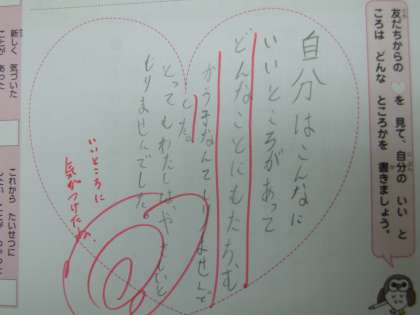 友だちからの ♡を 見て、自分の いい と
ころは どんな ところかを 書きましょう。
自分はこんなに
いいところがあって
どんなことにもたちむ
かう子なんてしりませんで
した。
とってもわたしはやさしいと
しりませんでした
いいところに
気がつけたね。
新しく 気づいた
ことが あった
これから たいせつに